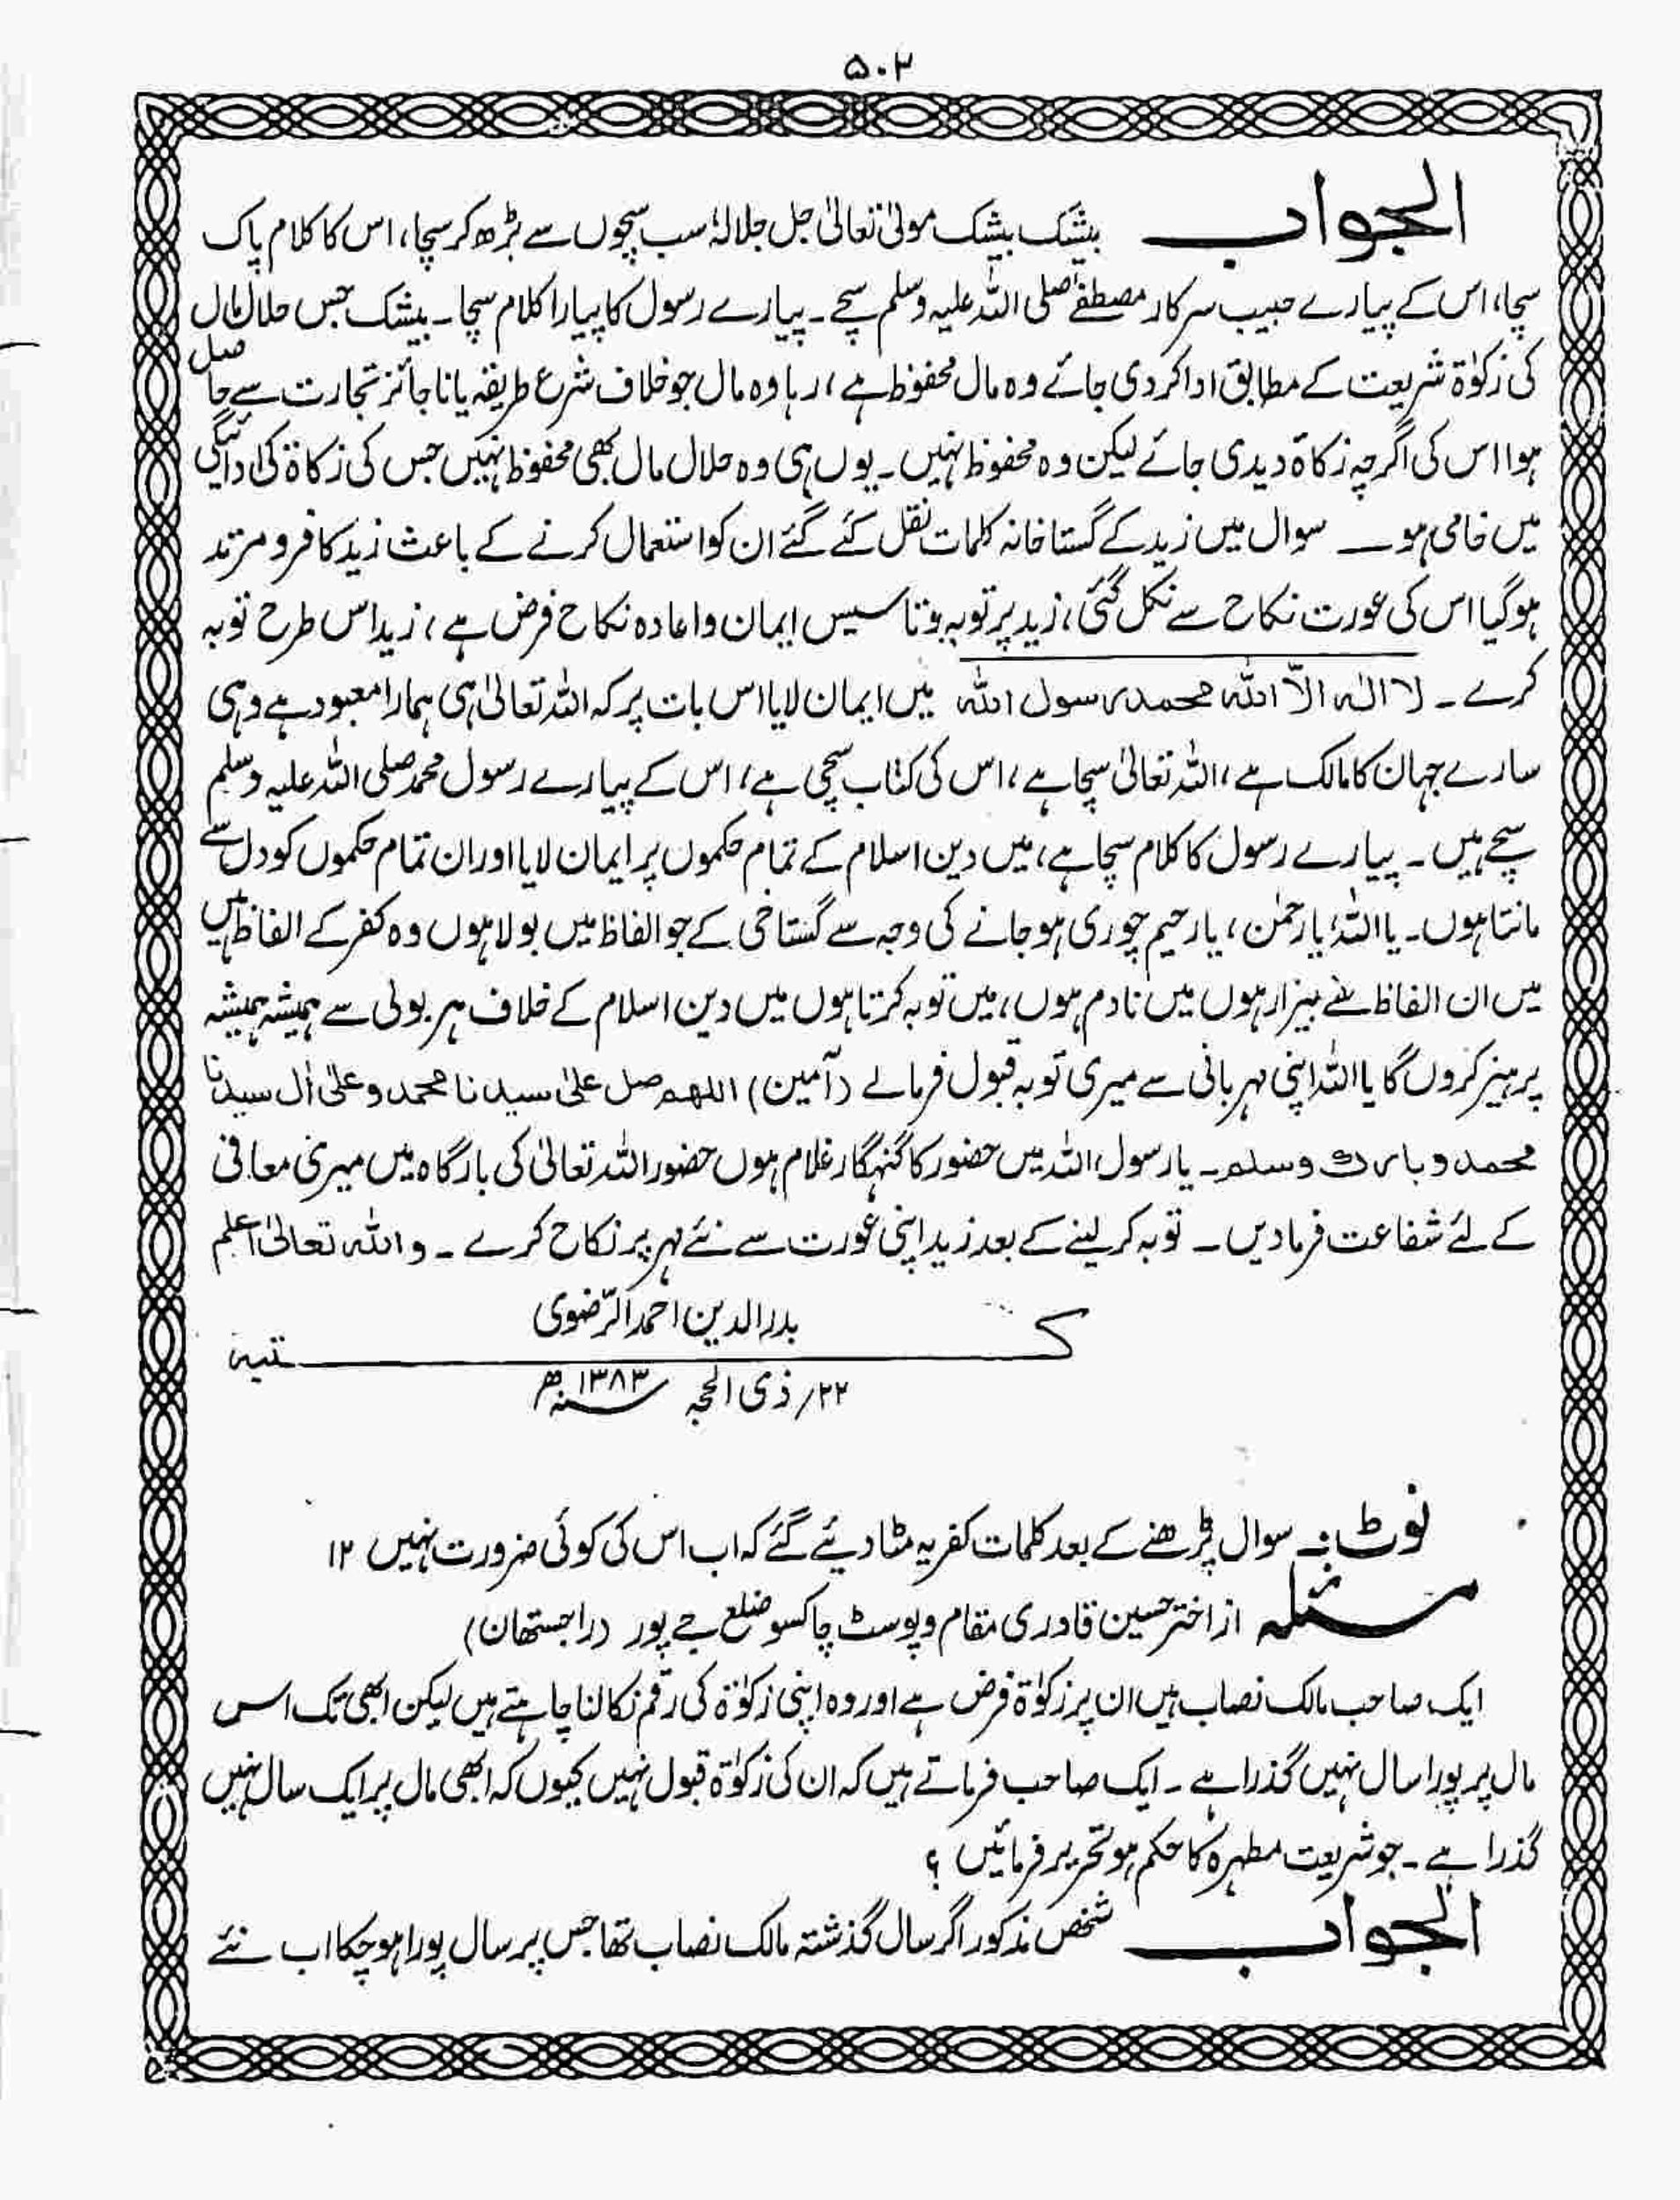 ۵۰۲
الجواب بیشک بیشک مولیٰ تعالیٰ جل جلالہٗ سب سچوں سے بڑھ کر سچا، اس کا کلام پاک
سچا، اس کے پیارے حبیب سرکار مصطفےٰ صلی اللہ علیہ وسلم سچے ۔ پیارے رسول کا پیارا کلام سچا ۔ بیشک جس حلال مال
کی زکوٰۃ شریعت کے مطابق ادا کر دی جائے وہ مال محفوظ ہے، رہا وہ مال جو خلاف شرع طریقہ یا ناجائز تجارت سے حاصل
ہوا اس کی اگرچہ زکاۃ دیدی جائے لیکن وہ محفوظ نہیں ۔ یوں ہی وہ حلال مال بھی محفوظ نہیں جس کی زکاۃ کی ادائیگی
میں خامی ہو ــ سوال میں زید کے گستاخانہ کلمات نقل کئے گئے ان کو استعمال کرنے کے باعث زید کافر و مرتد
ہوگیا اس کی عورت نکاح سے نکل گئی، زید پر توبہ و تاسیس ایمان و اعادہ نکاح فرض ہے، زید اس طرح توبہ
کرے ۔ لا الٰہ الّا اللہ محمد رسول اللہ میں ایمان لایا اس بات پر کہ اللہ تعالیٰ ہی ہمارا معبود ہے وہی
سارے جہان کا مالک ہے، اللہ تعالیٰ سچا ہے، اس کی کتاب سچی ہے، اس کے پیارے رسول محمد صلی اللہ علیہ وسلم
سچے ہیں ۔ پیارے رسول کا کلام سچا ہے، میں دین اسلام کے تمام حکموں پر ایمان لایا اور ان تمام حکموں کو دل سے
مانتا ہوں ۔ یا اللہ، یا رحمٰن، یا رحیم چوری ہو جانے کی وجہ سے گستاخی کے جو الفاظ میں بولا ہوں وہ کفر کے الفاظ ہیں
میں ان الفاظ سے بیزار ہوں میں نادم ہوں، میں توبہ کرتا ہوں میں دین اسلام کے خلاف ہر بولی سے ہمیشہ ہمیشہ
پرہیز کروں گا یا اللہ اپنی مہربانی سے میری توبہ قبول فرمالے (آمین) اللھم صل علیٰ سیدنا محمد وعلیٰ اٰل سیدنا
محمد وبارک وسلم ۔ یا رسول اللہ میں حضور کا گنہگار غلام ہوں حضور اللہ تعالیٰ کی بارگاہ میں میری معافی
کے لئے شفاعت فرمادیں ۔ توبہ کر لینے کے بعد زید اپنی عورت سے نئے مہر پر نکاح کرے ۔ واللہ تعالیٰ اعلم
بدر الدین احمد الرّضوی
کتبہ
۲۲؍ ذی الحجہ ۱۳۸۳ سنہ ھ
نوٹ :۔ سوال پڑھنے کے بعد کلمات کفریہ مٹا دیئے گئے کہ اب اس کی کوئی ضرورت نہیں ۱۲
مسئلہ از اختر حسین قادری مقام و پوسٹ چاکسو ضلع جے پور (راجستھان)
ایک صاحب مالک نصاب ہیں ان پر زکوٰۃ فرض ہے اور وہ اپنی زکوٰۃ کی رقم نکالنا چاہتے ہیں لیکن ابھی تک اس
مال پر پورا سال نہیں گذرا ہے ۔ ایک صاحب فرماتے ہیں کہ ان کی زکوٰۃ قبول نہیں کیوں کہ ابھی مال پر ایک سال نہیں
گذرا ہے ۔ جو شریعت مطہرہ کا حکم ہو تحریر فرمائیں ؟
الجواب شخص مذکور اگر سال گذشتہ مالک نصاب تھا جس پر سال پورا ہو چکا اب نئے